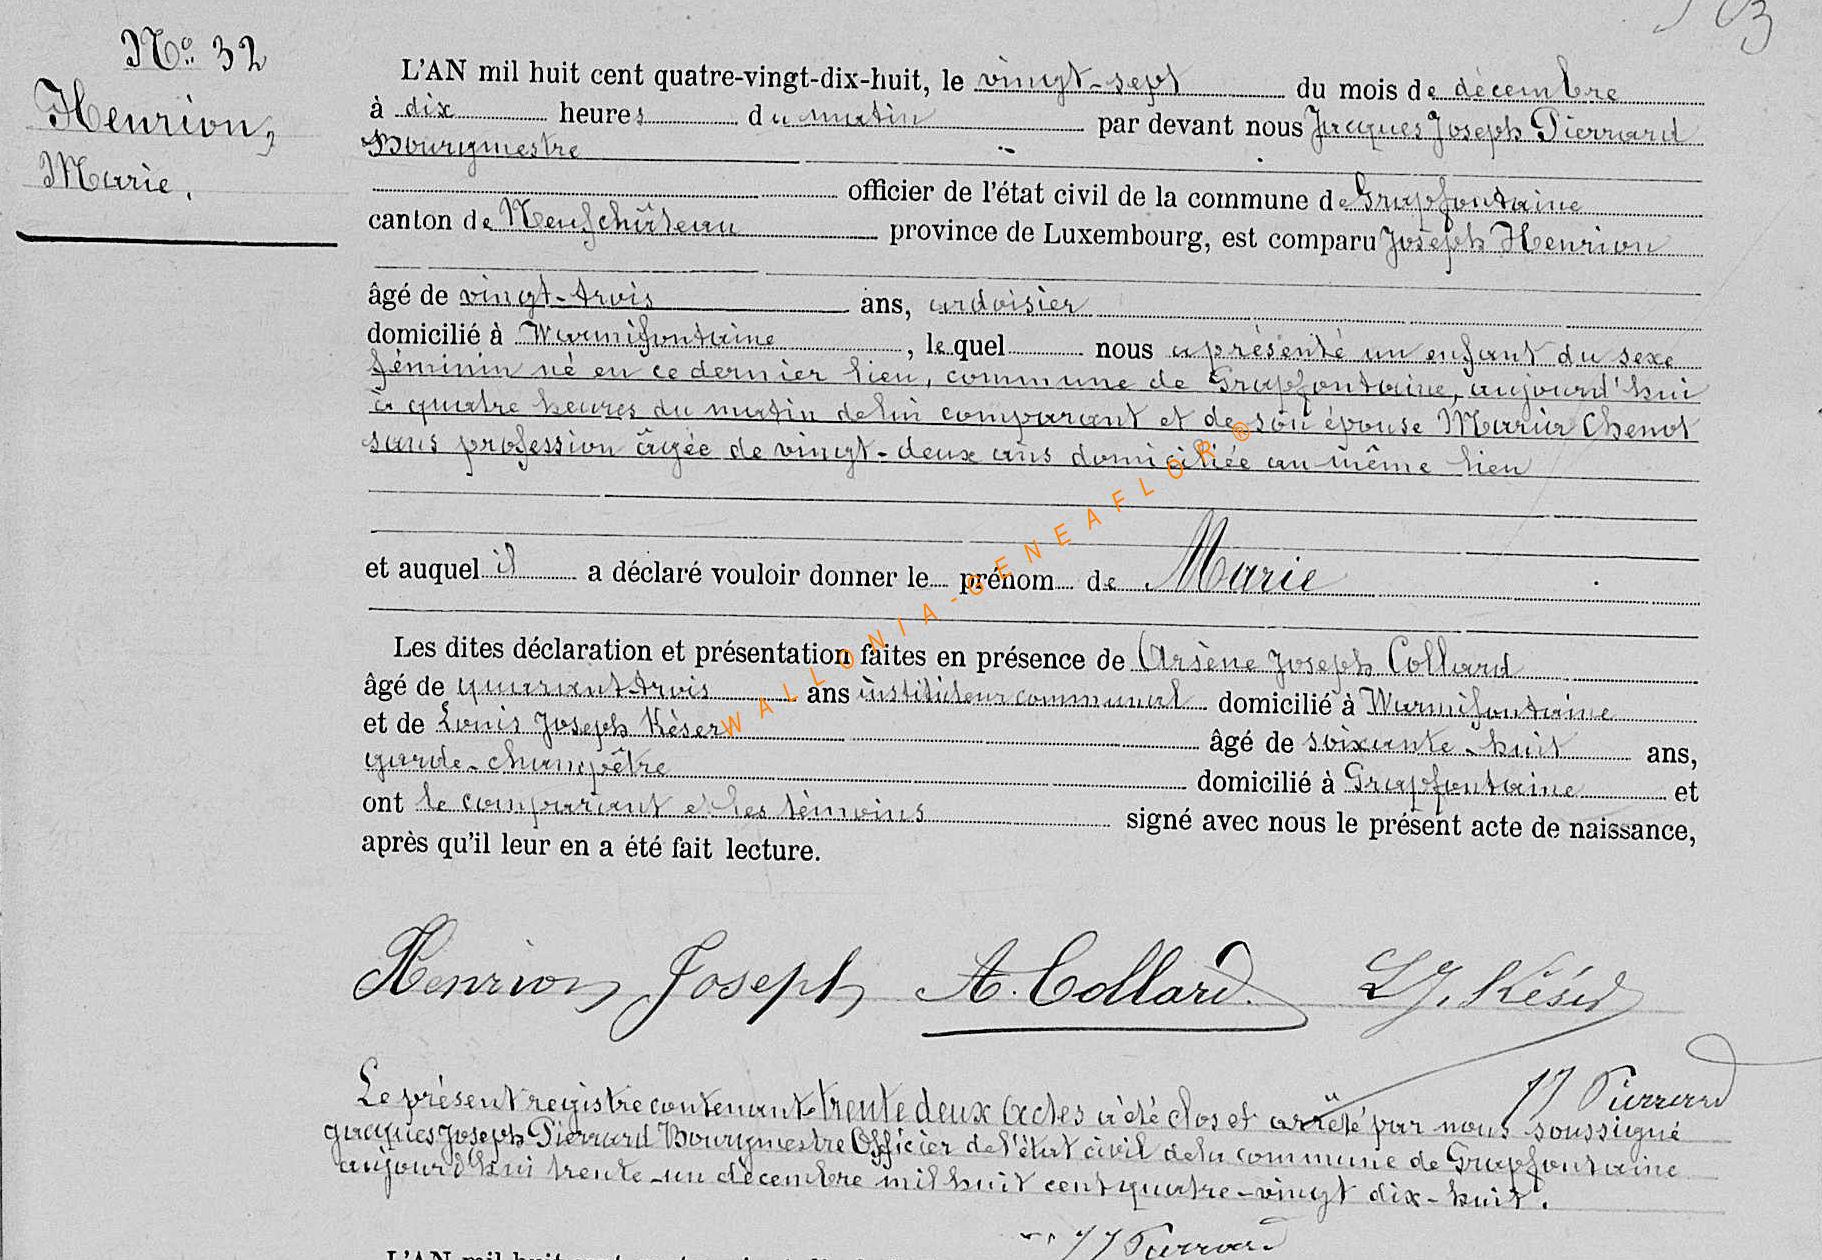 No. 32
Henrion,
Marie.
L'AN mil huit cent quatre-vingt-dix-huit, le vingt-sept du mois de décembre
à dix heures du matin par devant nous Jacques Joseph Pierrard
Bourgmestre
officier de l'état civil de la commune de Grapfontaine
canton de Neufchâteau province de Luxembourg, est comparu Joseph Henrion
âgé de vingt-trois ans, ardoisier
domicilié à Warmifontaine, lequel nous a présenté un enfant du sexe
féminin né en ce dernier lieu, commune de Grapfontaine, aujourd'hui
à quatre heures du matin de lui comparant et de son épouse Maria Chenot
sans profession âgée de vingt-deux ans domiciliée au même lieu
et auquel il a déclaré vouloir donner le prénom de Marie
Les dites déclaration et présentation faites en présence de Arsène Joseph Collard
âgé de quarant-trois ans instituteur communal domicilié à Warmifontaine
et de Louis Joseph Késer âgé de soixante-huit ans,
garde-champêtre domicilié à Grapfontaine et
ont le comparant et les témoins signé avec nous le présent acte de naissance,
après qu'il leur en a été fait lecture.
WALLONIA-GENEAFLOR®
Henrion Joseph A. Collard. LJ. Késer
JJ Pierrard
Le présent registre contenant trente deux actes a été clos et arrêté par nous soussigné
Jacques Joseph Pierrard Bourgmestre Officier de l'état civil de la commune de Grapfontaine
aujourd'hui trente-un décembre mil huit cent quatre-vingt dix-huit.
JJ Pierrard